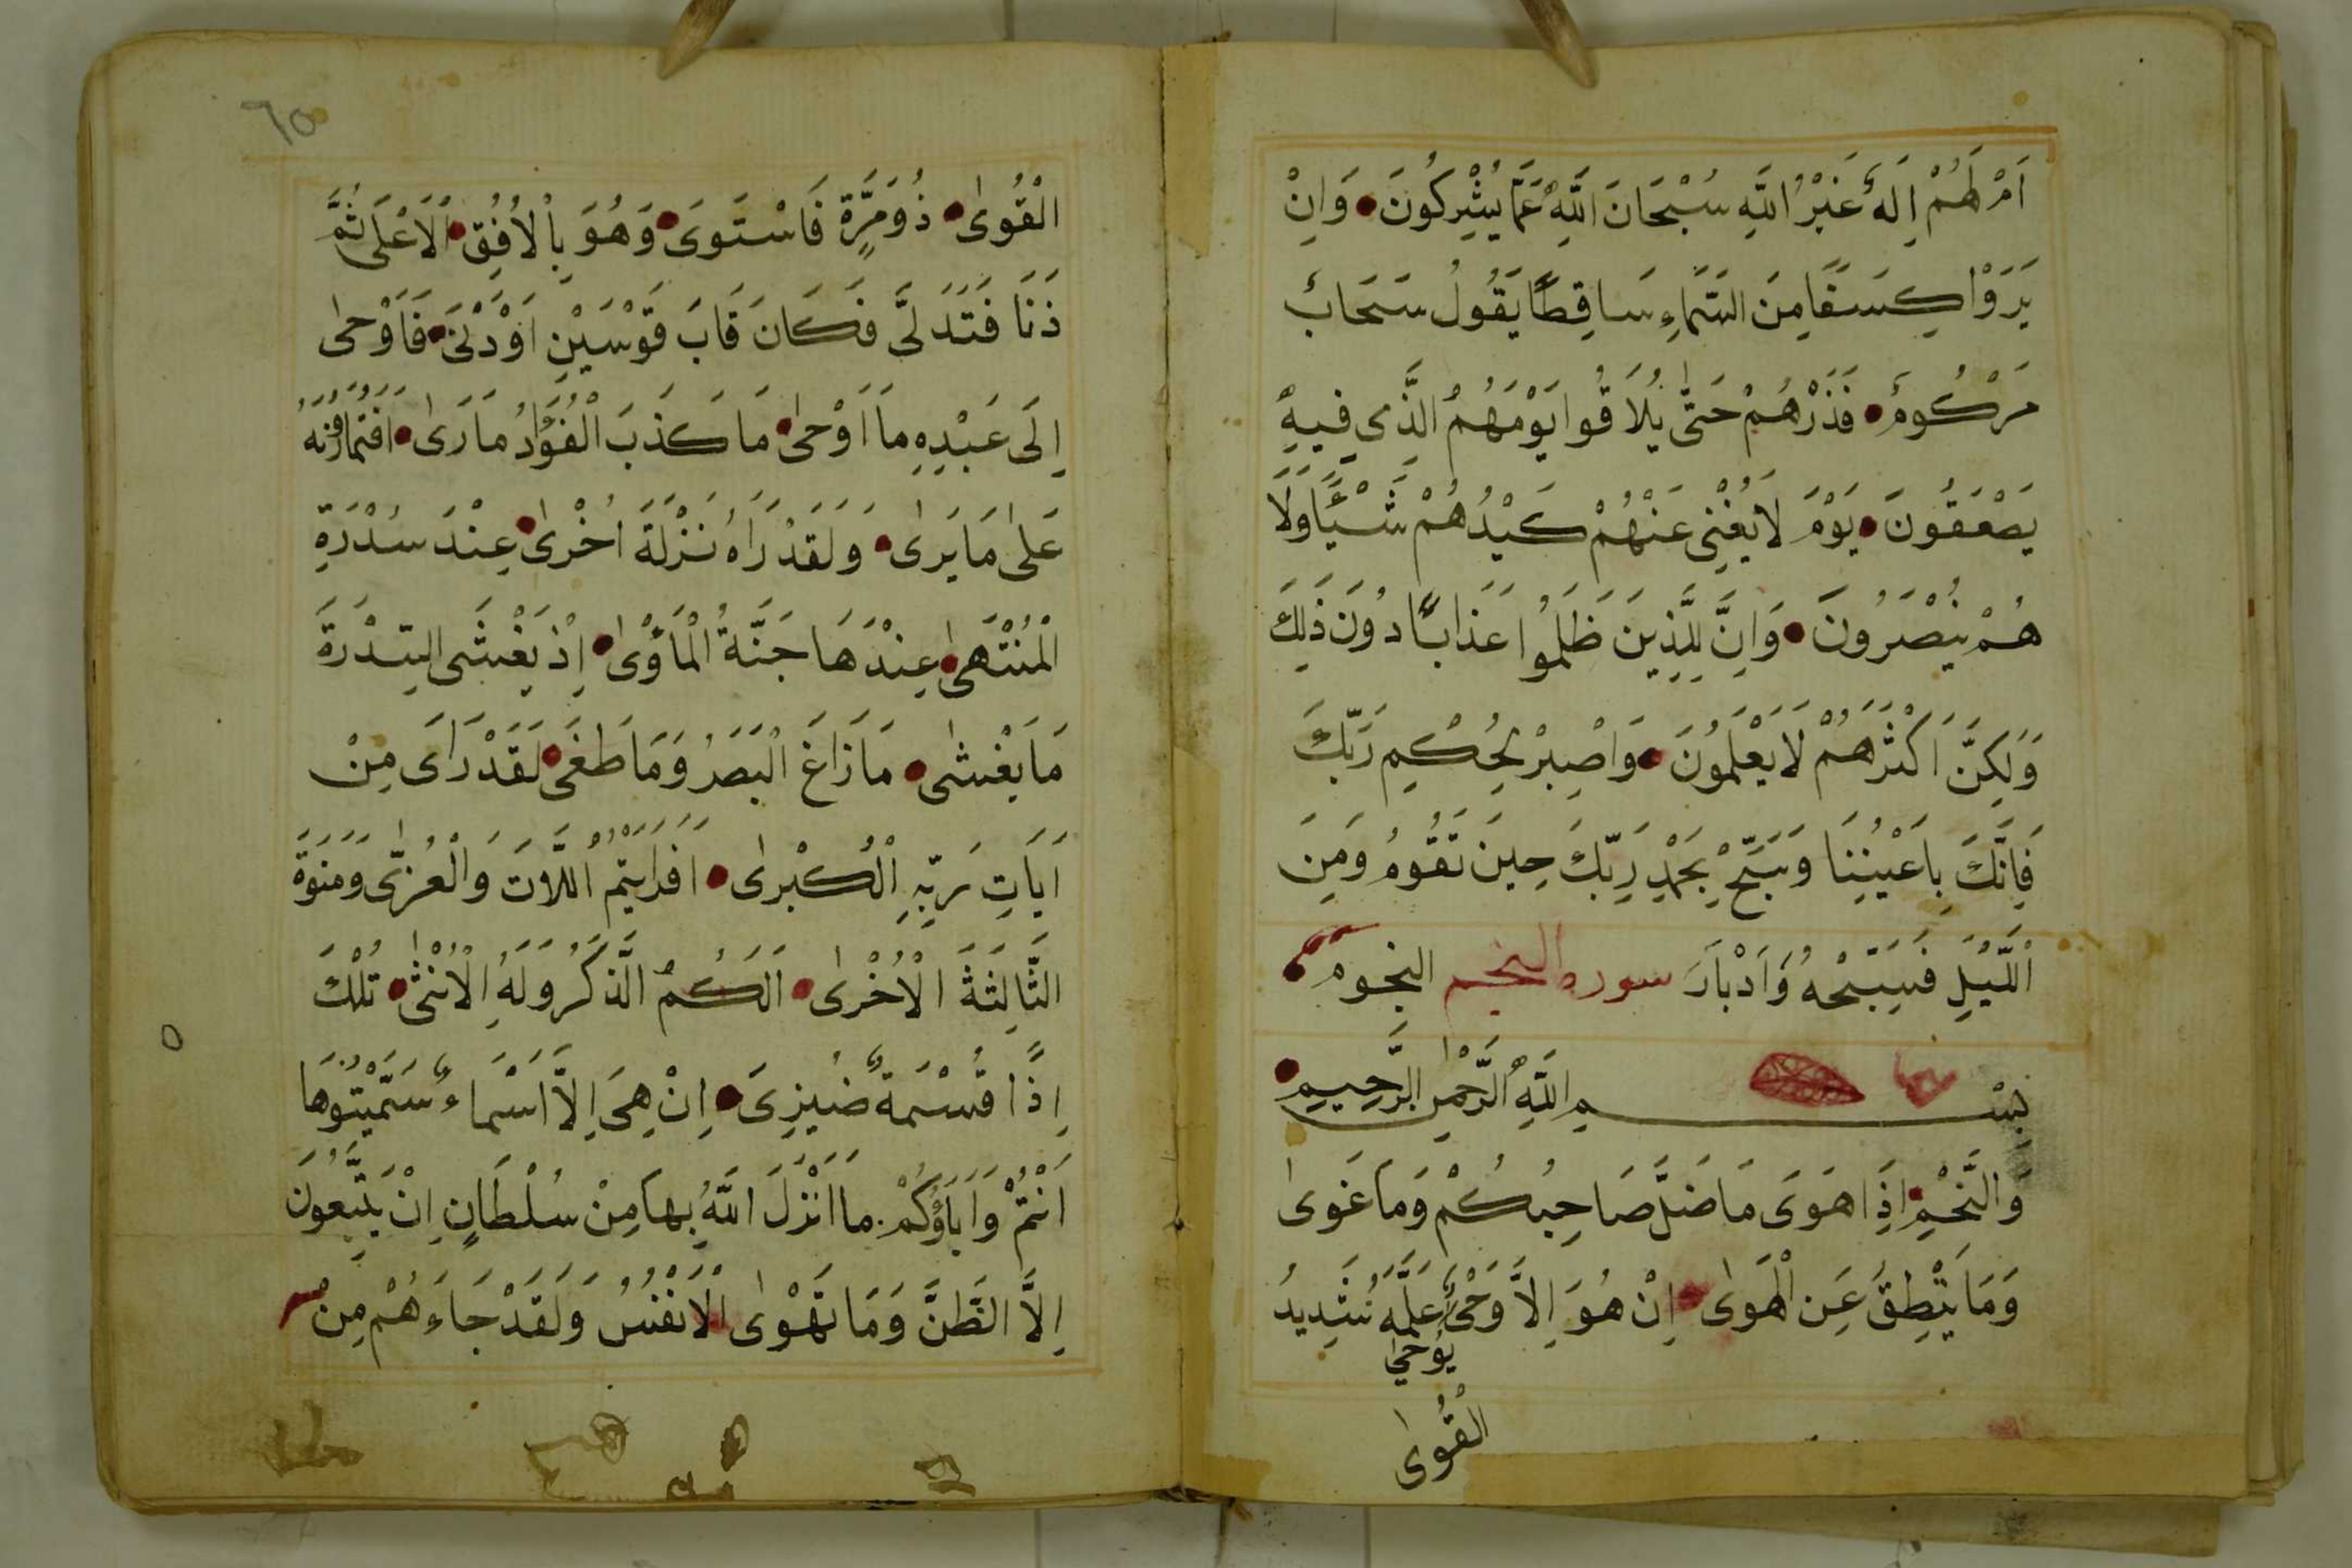 اَمْ لَهُمْ اِلَهٌ غَيْرُ اللَّهِ سُبْحَانَ اللَّهِ عَمَّا يُشْرِكُونَ وَاِنْ
يَرَوْا كِسَفًا مِنَ السَّمَاءِ سَاقِطًا يَقُولُ سَحَابٌ
مَرْكُومٌ فَذَرْهُمْ حَتَّى يُلَاقُوا يَوْمَهُمُ الَّذِي فِيهِ
يَصْعَقُونَ يَوْمَ لَا يُغْنِى عَنْهُمْ كَيْدُهُمْ شَيْئًا وَلَا
هُمْ يُنْصَرُونَ وَاِنَّ لِلَّذِينَ ظَلَمُوا عَذَابًا دُونَ ذَلِكَ
وَلَكِنَّ اَكْثَرَهُمْ لَا يَعْلَمُونَ وَاصْبِرْ لِحُكْمِ رَبِّكَ
فَاِنَّكَ بِاَعْيُنِنَا وَسَبِّحْ بِحَمْدِ رَبِّكَ حِينَ تَقُومُ وَمِنَ
اللَّيْلِ فَسَبِّحْهُ وَاَدْبَارَ سوره النجم النجوم
بِسْمِ اللَّهِ الرَّحْمٰنِ الرَّحِيمِ
وَالنَّجْمِ اِذَا هَوَى مَا ضَلَّ صَاحِبُكُمْ وَمَا غَوٰى
وَمَا يَنْطِقُ عَنِ الْهَوٰى اِنْ هُوَ اِلَّا وَحْىٌ عَلَّمَهُ شَدِيدُ
يُوحَى
الْقُوٰى
٦٥
الْقُوٰى ذُو مِرَّةٍ فَاسْتَوَى وَهُوَ بِالْاُفُقِ الْاَعْلَى ثُمَّ
دَنَا فَتَدَلَّى فَكَانَ قَابَ قَوْسَيْنِ اَوْ دْنَى فَاَوْحٰى
اِلَى عَبْدِهِ مَا اَوْحٰى مَا كَذَبَ الْفُؤَادُ مَا رَاٰى اَفَتُمَارُونَهُ
عَلٰى مَا يَرٰى وَلَقَدْ رَاهُ نَزْلَةً اُخْرٰى عِنْدَ سُدْرَةِ
الْمُنْتَهٰى عِنْدَهَا جَنَّةُ الْمَاْوٰى اِذْ يَغْشَى السِّدْرَةَ
مَا يَغْشٰى مَا زَاغَ الْبَصَرُ وَمَا طَغَى لَقَدْ رَاَى مِنْ
اَيَاتِ رَبِّهِ الْكُبْرٰى اَفَرَايْتُمُ اللَّاتَ وَالْعُزّٰى وَمَنَوةَ
الثَّالِثَةَ الْاُخْرٰى اَلَكُمُ الَّذكَرُ وَلَهُ الْاُنْثٰى تُلْكَ
اِذًا قُسْمَةٌ ضِيْزِىَ اِنْ هِىَ اِلَّا اَسْمَاءٌ سَمَّيْتُوهَا
اَنْتُمْ وَاَبَاؤُكُمْ مَا اَنْزَلَ اللَّهُ بِهَا مِنْ سُلْطَانٍ اِنْ يَتَّبِعُونَ
اِلَّا الظَّنَّ وَمَا تَهْوٰى الْاَنْفُسُ وَلَقَدْ جَاءَهُمْ مِنْ